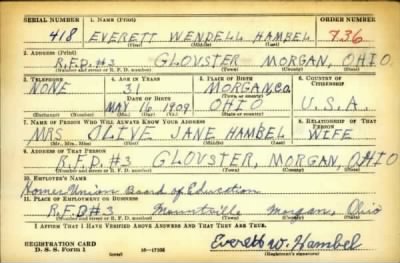 SERIAL NUMBER 1. NAME (Print) ORDER NUMBER
418 EVERETT WENDELL HAMBEL 736
(First) (Middle) (Last)
2. ADDRESS (Print)
R.F.D. #3 GLOUSTER MORGAN, OHIO
(Number and street or R. F. D. number) (Town) (County) (State)
3. TELEPHONE 4. AGE IN YEARS 5. PLACE OF BIRTH 6. COUNTRY OF CITIZENSHIP
NONE 31 MORGAN, CO.
DATE OF BIRTH (Town or county)
MAY 16 1909 OHIO U.S.A.
(Mo.) (Day) (Yr.) (State or country)
7. NAME OF PERSON WHO WILL ALWAYS KNOW YOUR ADDRESS 8. RELATIONSHIP OF THAT PERSON
MRS OLIVE JANE HAMBEL WIFE
(Mr., Mrs., Miss) (First) (Middle) (Last)
9. ADDRESS OF THAT PERSON
R.F.D. #3 GLOUSTER, MORGAN, OHIO
(Number and street or R. F. D. number) (Town) (County) (State)
10. EMPLOYER'S NAME
Homer Union Board of Education
11. PLACE OF EMPLOYMENT OR BUSINESS
R.F.D #3 Mountville Morgan, Ohio
(Number and street or R. F. D. number) (Town) (County) (State)
I AFFIRM THAT I HAVE VERIFIED ABOVE ANSWERS AND THAT THEY ARE TRUE.
REGISTRATION CARD
D. S. S. Form 1 (over) 16—17105 Everett W. Hambel
(Registrant's signature)